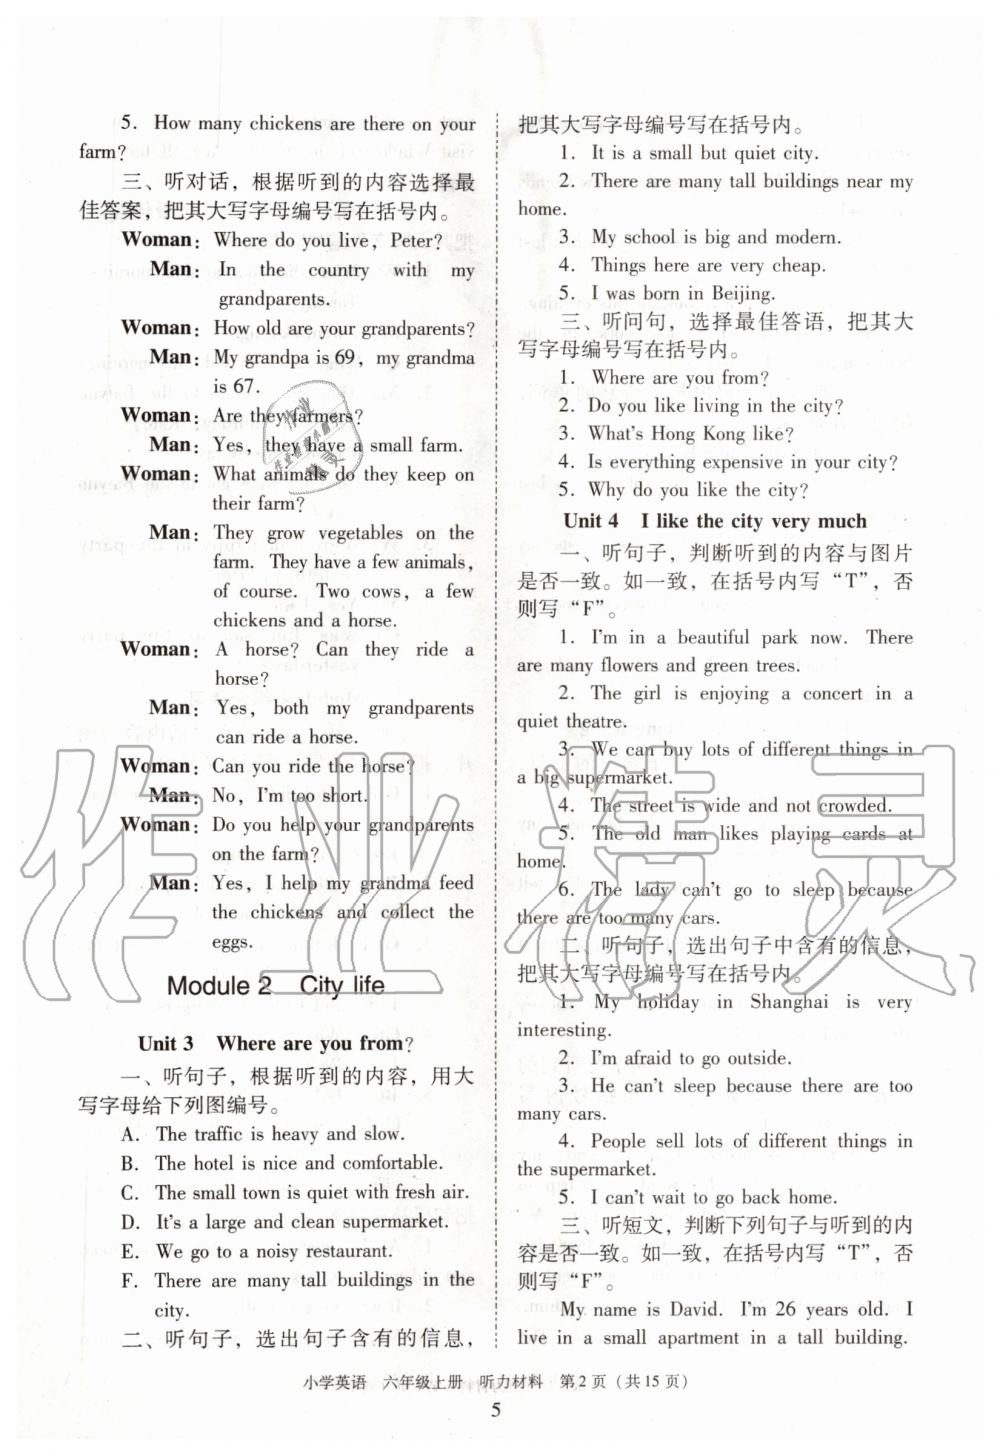 5. How many chickens are there on your
farm?
三、听对话，根据听到的内容选择最
佳答案，把其大写字母编号写在括号内。
Woman: Where do you live, Peter?
Man: In the country with my
grandparents.
Woman: How old are your grandparents?
Man: My grandpa is 69, my grandma
is 67.
Woman: Are they farmers?
Man: Yes, they have a small farm.
Woman: What animals do they keep on
their farm?
Man: They grow vegetables on the
farm. They have a few animals,
of course. Two cows, a few
chickens and a horse.
Woman: A horse? Can they ride a
horse?
Man: Yes, both my grandparents
can ride a horse.
Woman: Can you ride the horse?
Man: No, I'm too short.
Woman: Do you help your grandparents
on the farm?
Man: Yes, I help my grandma feed
the chickens and collect the
eggs.
Module 2 City life
Unit 3 Where are you from?
一、听句子，根据听到的内容，用大
写字母给下列图编号。
A. The traffic is heavy and slow.
B. The hotel is nice and comfortable.
C. The small town is quiet with fresh air.
D. It's a large and clean supermarket.
E. We go to a noisy restaurant.
F. There are many tall buildings in the
city.
二、听句子，选出句子含有的信息，
把其大写字母编号写在括号内。
1. It is a small but quiet city.
2. There are many tall buildings near my
home.
3. My school is big and modern.
4. Things here are very cheap.
5. I was born in Beijing.
三、听问句，选择最佳答语，把其大
写字母编号写在括号内。
1. Where are you from?
2. Do you like living in the city?
3. What's Hong Kong like?
4. Is everything expensive in your city?
5. Why do you like the city?
Unit 4 I like the city very much
一、听句子，判断听到的内容与图片
是否一致。如一致，在括号内写“T”，否
则写“F”。
1. I'm in a beautiful park now. There
are many flowers and green trees.
2. The girl is enjoying a concert in a
quiet theatre.
3. We can buy lots of different things in
a big supermarket.
4. The street is wide and not crowded.
5. The old man likes playing cards at
home.
6. The lady can't go to sleep because
there are too many cars.
二、听句子，选出句子中含有的信息，
把其大写字母编号写在括号内。
1. My holiday in Shanghai is very
interesting.
2. I'm afraid to go outside.
3. He can't sleep because there are too
many cars.
4. People sell lots of different things in
the supermarket.
5. I can't wait to go back home.
三、听短文，判断下列句子与听到的内
容是否一致。如一致，在括号内写“T”，否
则写“F”。
My name is David. I'm 26 years old. I
live in a small apartment in a tall building.
小学英语 六年级上册 听力材料 第2页（共15页）
5
作业精灵